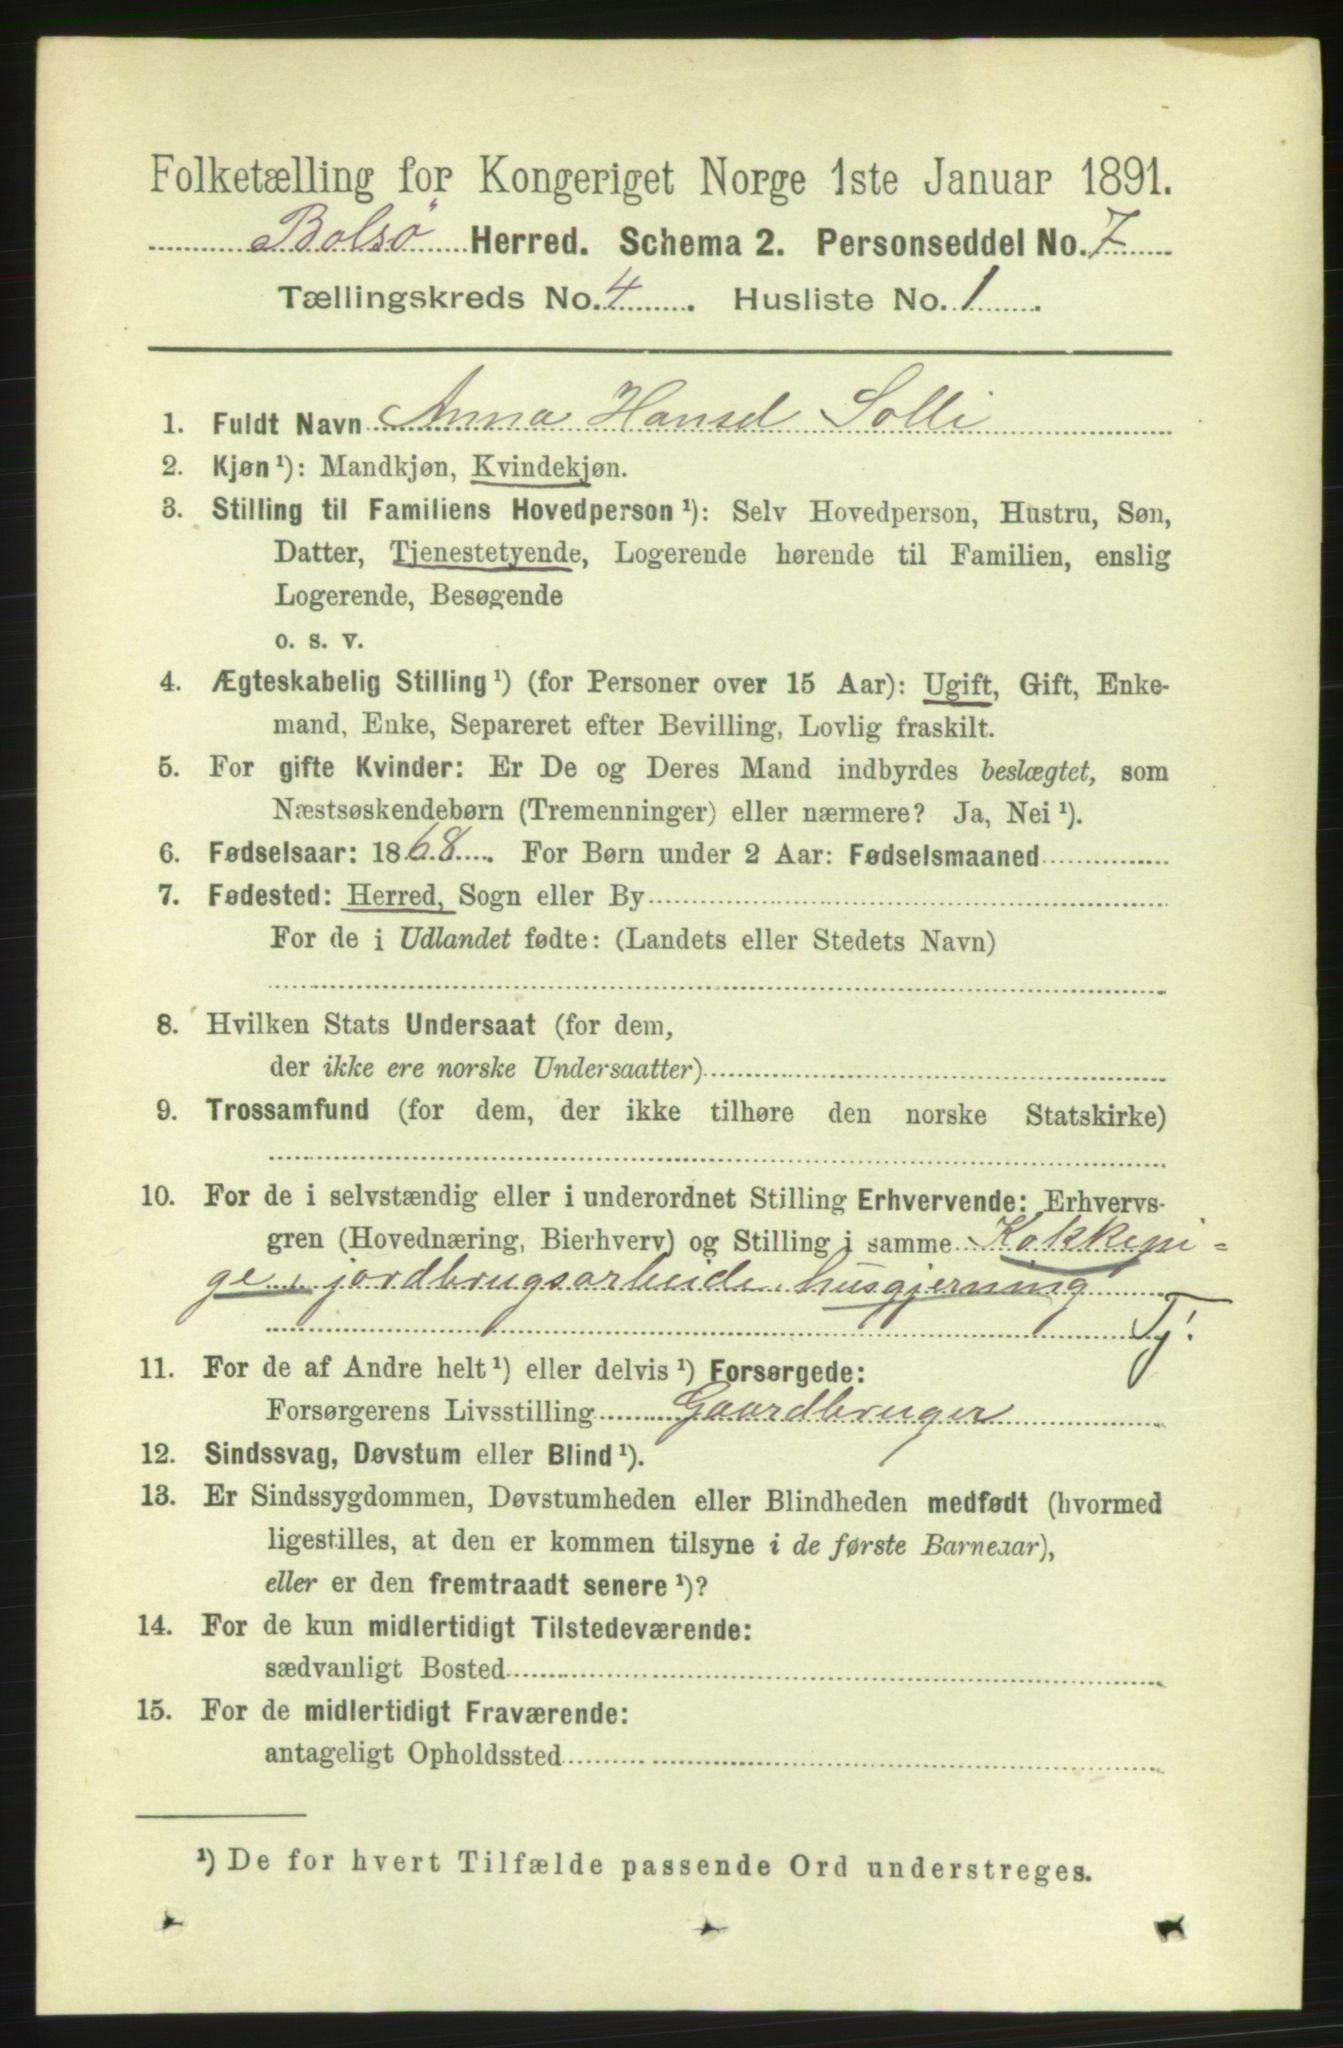 Folketælling for Kongeriget Norge 1ste Januar 1891.
Bolsö Herred. Schema 2. Personseddel No. 7
Tællingskreds No. 4. Husliste No. 1.
1. Fuldt Navn Anna Hansd Solli
2. Kjøn ¹): Mandkjøn, Kvindekjøn.
3. Stilling til Familiens Hovedperson ¹): Selv Hovedperson, Hustru, Søn,
Datter, Tjenestetyende, Logerende hørende til Familien, enslig
Logerende, Besøgende
o. s. v.
4. Ægteskabelig Stilling ¹) (for Personer over 15 Aar): Ugift, Gift, Enke-
mand, Enke, Separeret efter Bevilling, Lovlig fraskilt.
5. For gifte Kvinder: Er De og Deres Mand indbyrdes beslægtet, som
Næstsøskendebørn (Tremenninger) eller nærmere? Ja, Nei ¹).
6. Fødselsaar: 1868. For Børn under 2 Aar: Fødselsmaaned
7. Fødested: Herred, Sogn eller By
For de i Udlandet fødte: (Landets eller Stedets Navn)
8. Hvilken Stats Undersaat (for dem,
der ikke ere norske Undersaatter)
9. Trossamfund (for dem, der ikke tilhøre den norske Statskirke)
10. For de i selvstændig eller i underordnet Stilling Erhvervende: Erhvervs-
gren (Hovednæring, Bierhverv) og Stilling i samme Kokkepi-
ge, jordbrugsarbeide, husgjerning
Tj.
11. For de af Andre helt ¹) eller delvis ¹) Forsørgede:
Forsørgerens Livsstilling Gaardbruger
12. Sindssvag, Døvstum eller Blind ¹).
13. Er Sindssygdommen, Døvstumheden eller Blindheden medfødt (hvormed
ligestilles, at den er kommen tilsyne i de første Barneaar),
eller er den fremtraadt senere ¹)?
14. For de kun midlertidigt Tilstedeværende:
sædvanligt Bosted
15. For de midlertidigt Fraværende:
antageligt Opholdssted
¹) De for hvert Tilfælde passende Ord understreges.